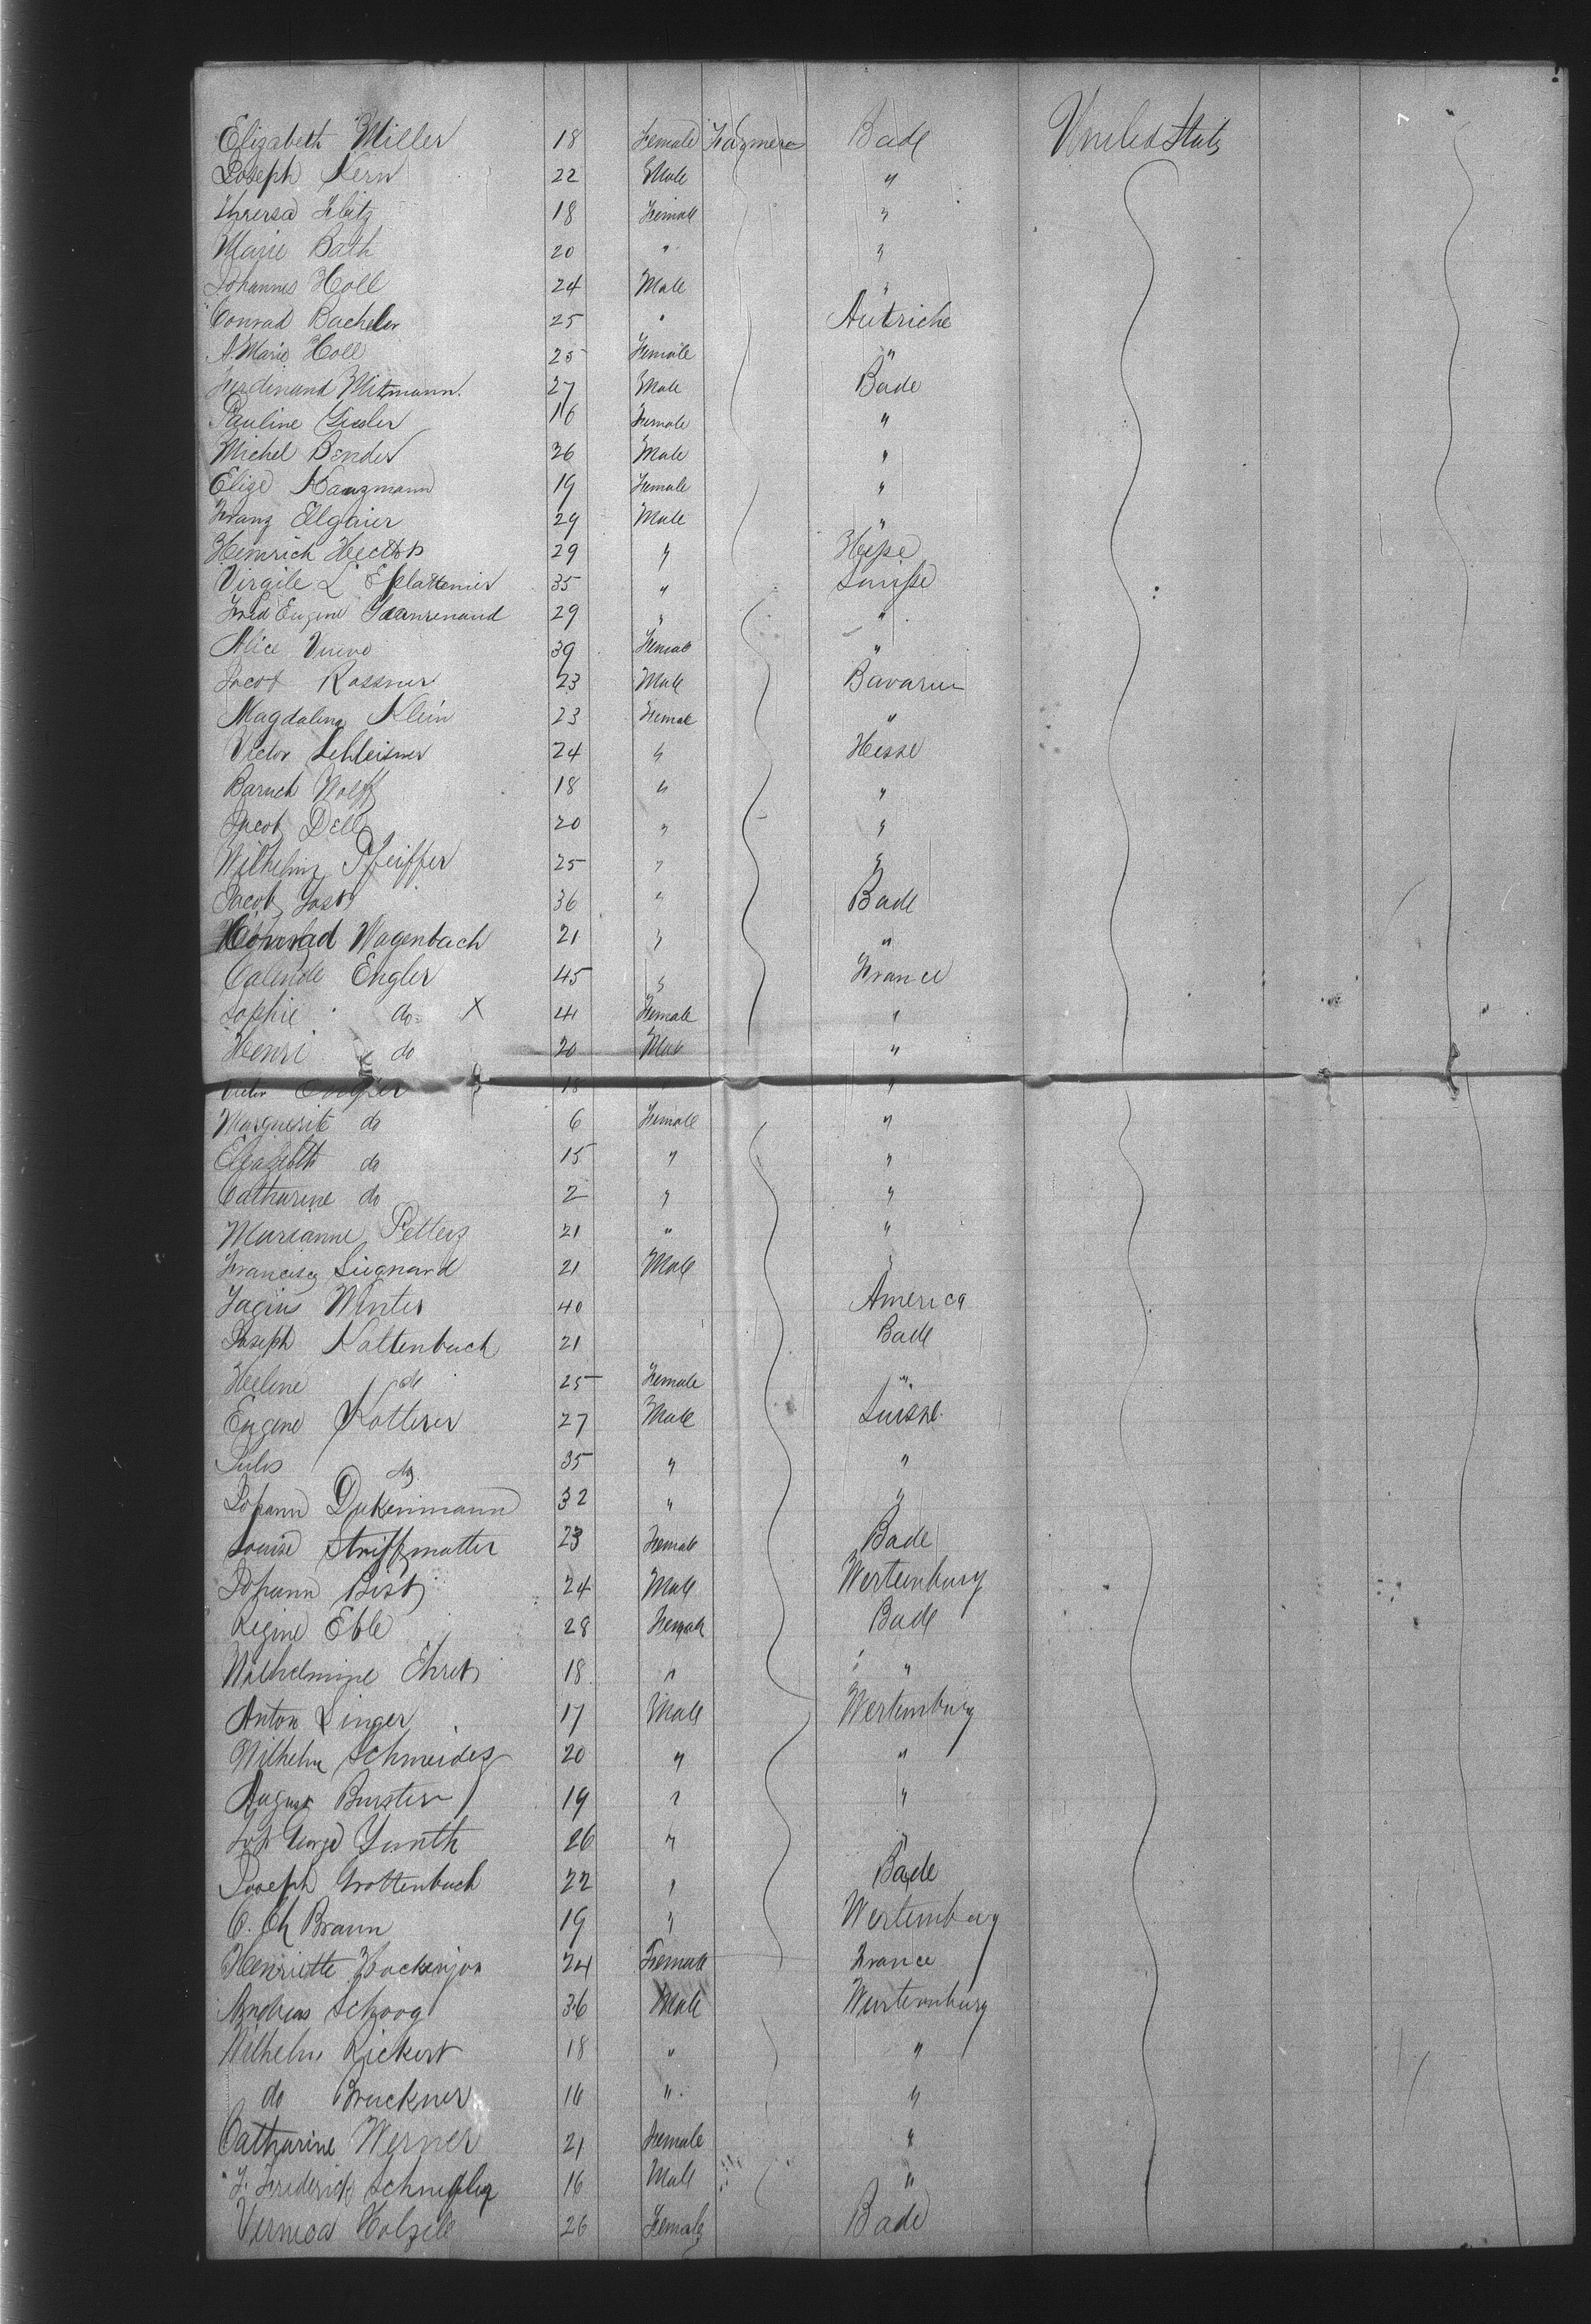 Elizabeth Miller 18 Female Farmers Bade United States
Joseph Kern 22 Male "
Thresa Flatz 18 Female "
Marie Bath 20 " "
Johannes Holl 24 Male "
Conrad Bacheler 25 " Autriche
A. Marie Holl 25 Female "
Ferdinand Witzmann 27 Male Bade
Pauline 16 Female "
Michel Bender 26 Male "
Elise Kanzmann 19 Female "
Franz Elgaier 29 Male "
Heinrich Hector 29 " Hesse
Virgile L'Eplattenier 35 " Suisse
Fred Eugene 29 " "
Alice 39 Female "
Jacob Rossner 23 Male Bavaria
Magdalena Klein 23 Female "
Victor Schleisner 24 " Hesse
Baruch Wolff 18 " "
Jacob Dell 20 " "
Wilhelm Pfeiffer 25 " "
Jacob Jost 36 " Bade
Konrad Wagenbach 21 " "
Engler 45 " France
Sophie do X 41 Female "
Henri do 20 Male "
Victor Engler 18 " "
Marguerite do 6 Female "
Elisabeth do 15 " "
Catharine do 2 " "
Marianne Petters 21 " "
Francisca Siegnard 21 Male "
Winter 40 America
Joseph Kaltenbach 21 Bade
Helene do 25 Female "
Eugene Kotterer 27 Male Suisse
Jules do 35 " "
Johann Dukenmann 32 " "
Louise Strittmatter 23 Female Bade
Johann Bist 24 Male Wertemburg
Regine Eble 28 Female Bade
Wilhelmine Ehret 18 " "
Anton Singer 17 Male Wertemburg
Wilhelm Schneider 20 " "
August Burster 19 " "
Joh George Junth 26 " "
Joseph Grottenbach 22 " Bade
C. Ch Braun 19 " Wertemburg
Henriette 24 Female France
Andreas Schoog 36 Male Wurtemburg
Wilhelm Rickert 18 " "
do Bruckner 16 " "
Catharine Werner 21 Female "
F. Frederick 16 Male "
Vernica Holzell 26 Female Bade